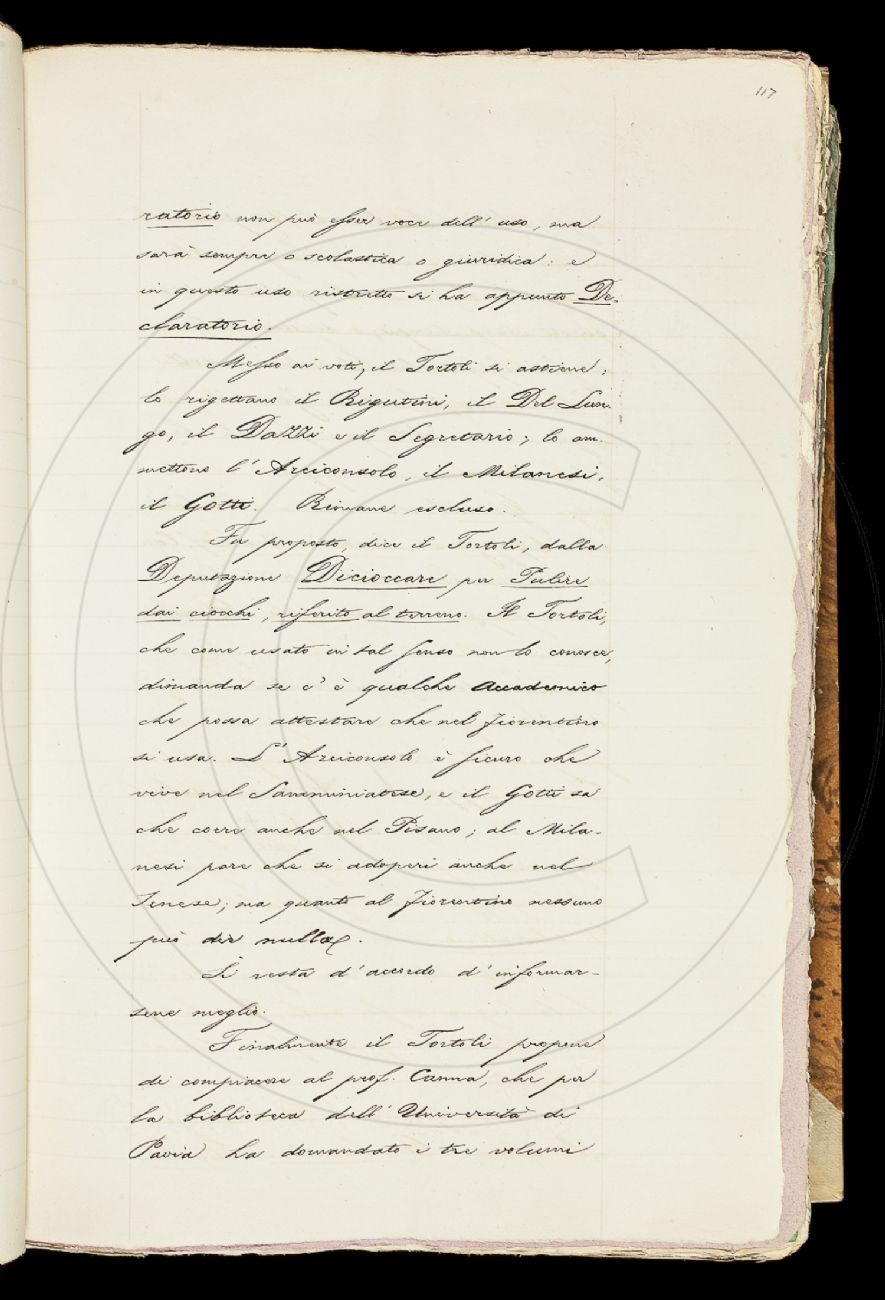 117
ratorio non può esser voce dell'uso, ma
sarà sempre o scolastica o giuridica: e
in questo uso ristretto si ha appunto De-
claratorio.
Messo ai voti, il Tortoli si astiene;
lo rigettano il Rigutini, il Del Lun-
go, il Dazzi e il Segretario; lo am-
mettono l'Arciconsolo, il Milanesi,
il Gotti. Rimane escluso.
Fu proposto, dice il Tortoli, dalla
Deputazione Dicioccare per Pulire
dai ciocchi, riferito al terreno. Il Tortoli,
che come usato in tal senso non lo conosce,
dimanda se c'è qualche Accademico
che possa attestare che nel fiorentino
si usa. L'Arciconsolo è sicuro che
vive nel Samminiatese, e il Gotti sa
che corre anche nel Pisano; al Mila-
nesi pare che si adoperi anche nel
Senese; ma quanto al fiorentino nessuno
può dir nulla.
Si resta d'accordo d'informar-
sene meglio.
Finalmente il Tortoli propone
di compiacere al prof. Canna, che per
la biblioteca dell'Università di
Pavia ha domandato i tre volumi